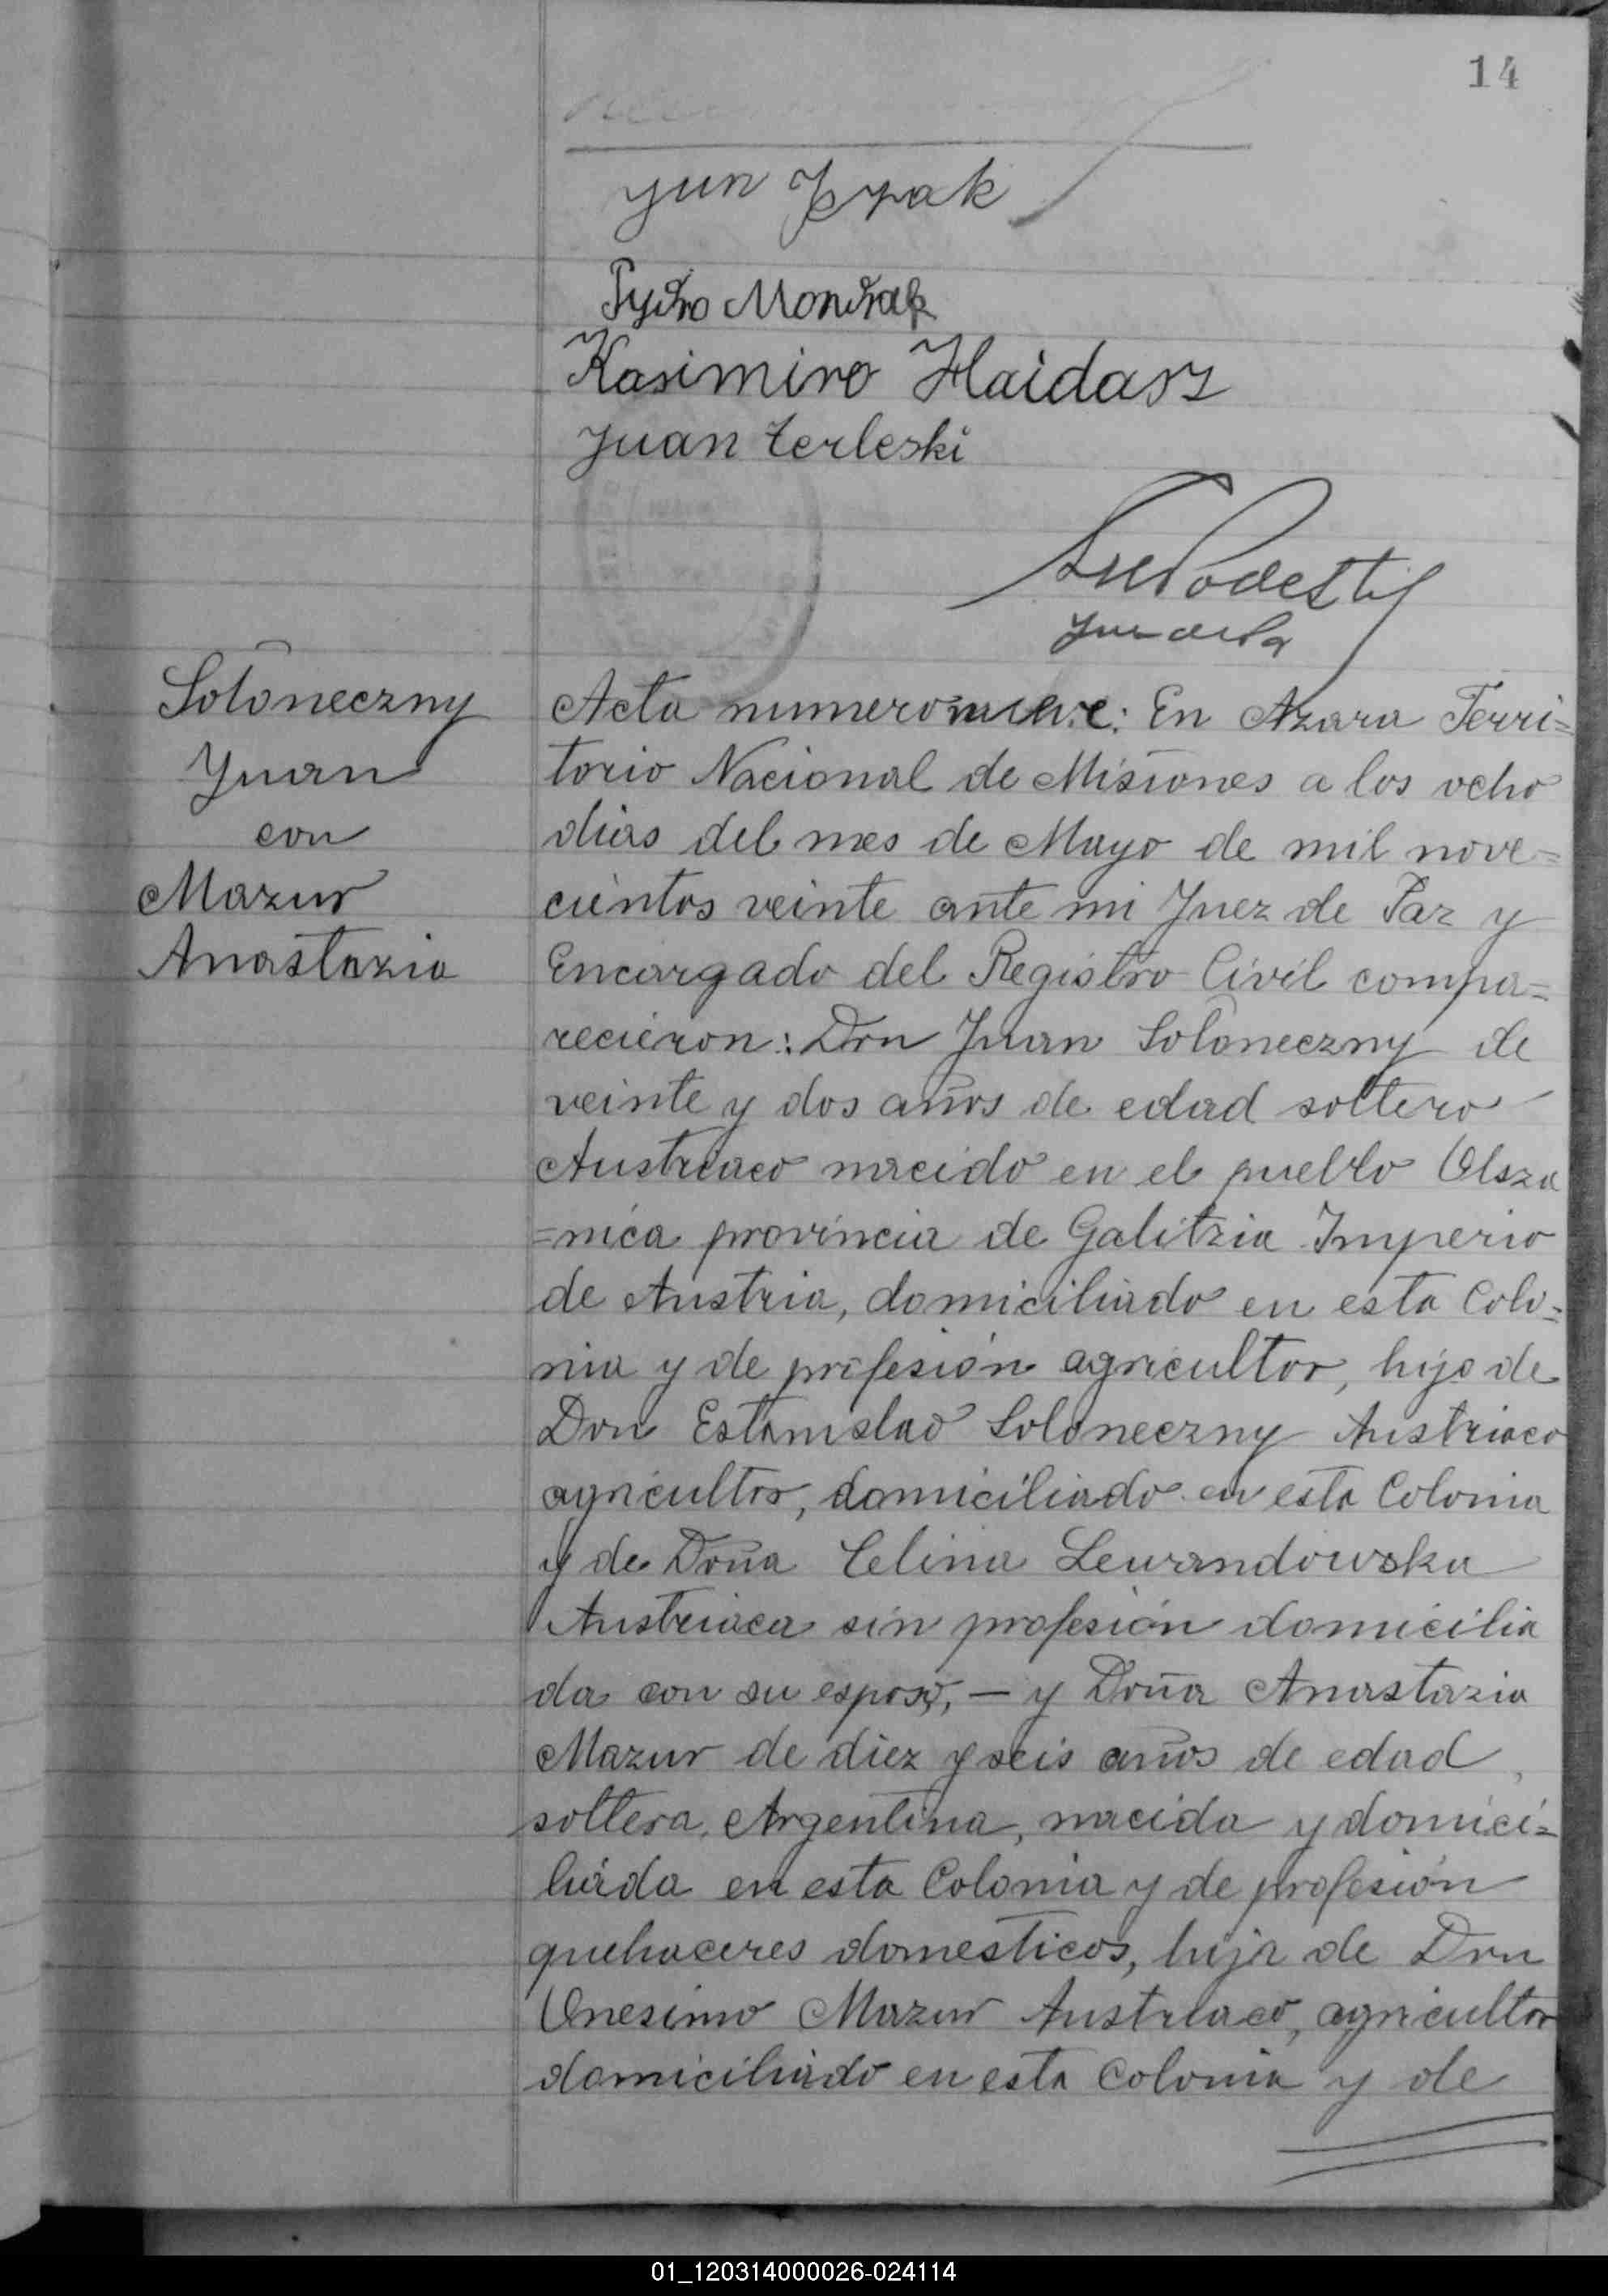 14
Pydro Mondrak
Kasimiro Haidasz
Juan terleski
Soloneczny
Juan
con
Mazur
Anastazia
Acta numero nueve: En Azara Terri=
torio Nacional de Misiones a los ocho
dias del mes de Mayo de mil nove=
cientos veinte ante mi Juez de Paz y
Encargado del Registro Civil compa=
recieron: Don Juan Soloneczny de
veinte y dos años de edad soltero
Austriaco nacido en el pueblo Olsza
=nica provincia de Galitzia Imperio
de Austria, domiciliado en esta Colo=
nia y de profesión agricultor, hijo de
Don Estanislao Soloneczny Austriaco
agricultor, domiciliado en esta Colonia
y de Doña Celina Lewandowska
Austriaca sin profesión domicilia
da con su esposo, — y Doña Anastazia
Mazur de diez y seis años de edad,
soltera, Argentina, nacida y domici=
liada en esta Colonia y de profesión
quehaceres domesticos, hija de Don
Onesimo Mazur Austriaco, agricultor
domiciliado en esta Colonia y de
01_120314000026-024114